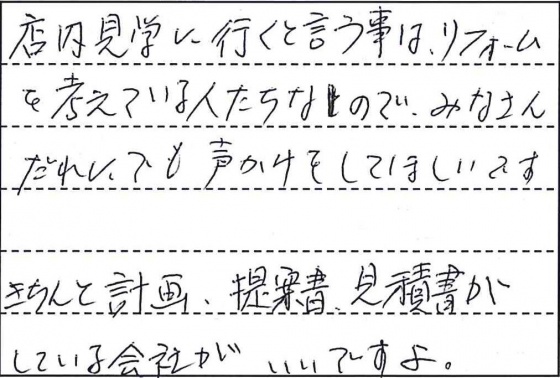 店内見学に行くと言う事は、リフォーム
を考えている人たちなので、みなさん
だれにでも声かけをしてほしいです
きちんと計画、提案書、見積書が
している会社がいいですよ。